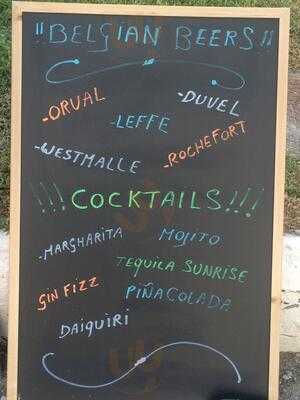 !! BELGIAN BEERS !!
-ORVAL
-DUVEL
-LEFFE
-WESTMALLE
-ROCHEFORT
!!! COCKTAILS !!!
-MARGHARITA
MOJITO
TEQUILA SUNRISE
GIN FIZZ
PIÑA COLADA
DAIQUIRI